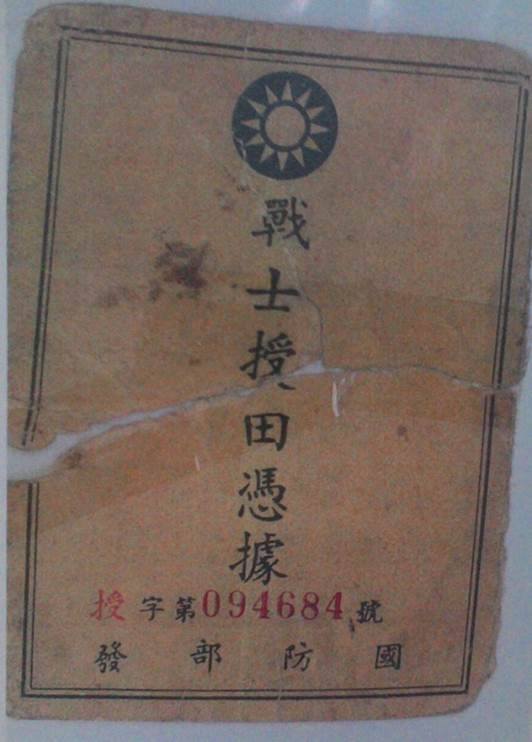 戰士授田憑據
授字第094684號
國防部發